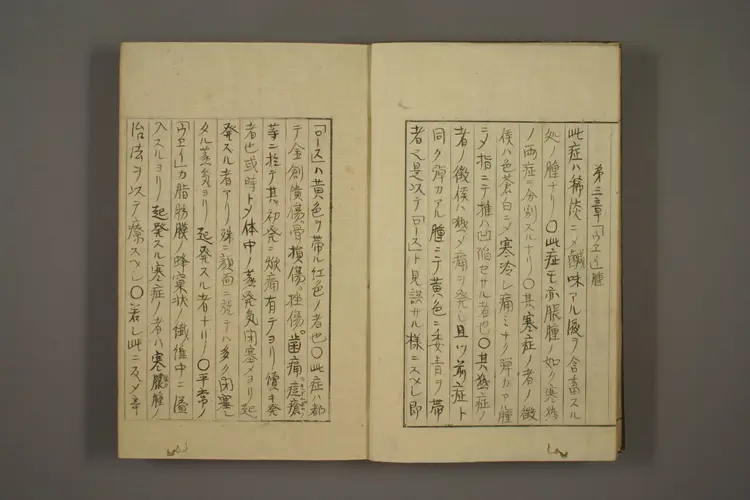 第三章「ウエー」腫
此症ハ稀淡ニメ鹹味アル液ヲ含畜スル
処ノ腫ナリ〇此症モ亦脹腫ノ如ク寒熱
ノ両症ニ分別スルナリ〇其寒症ノ者ノ徴
候ハ色蒼白ニメ寒冷シ痛ミナク弾力ナ腫
ニメ指ニテ推ハ凹陥セサル者也〇其熱症ノ
者ノ徴候ハ熾メ痛ヲ発シ且ツ前症ト
同ク弾力アル腫ニテ黄色ニ委青ヲ帯
者之是以テ「ロース」ト見誤サル様ニスヘシ即
「ロース」ハ黄色ヲ帯ル紅色ノ者也〇此症ハ都
テ金創潰瘍骨損傷挫傷歯痛痘瘡
等ニ於テ其初発ニ焮痛有テヨリ続キ発
者也或時トメ体中ノ蒸発気閉塞メヨリ起
発スル者アリ殊ニ顔面ニ於テハ多ク閉塞シ
タル蒸気ヨリ起発スル者ナリ〇平常ノ
「ウエー」カ脂肪膜ノ蜂窠状ノ繊維中ニ溢
入スルヨリ起発スル寒症ノ者ハ寒膿腫ノ
治法ヲ以テ療スヘシ〇若シ此ニスメ章